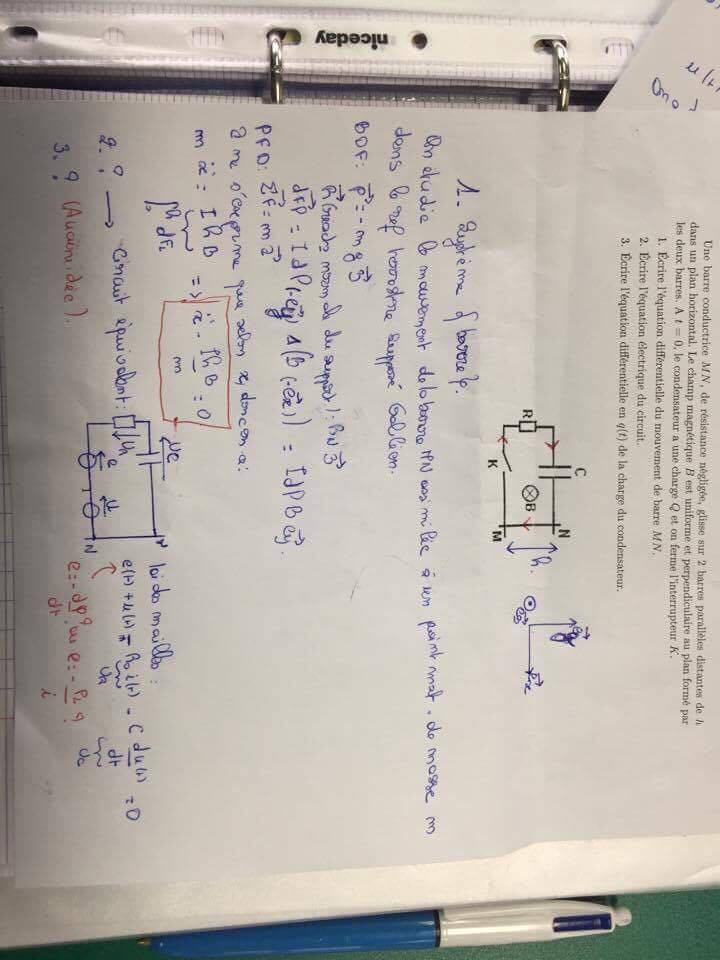 niceday
Une barre conductrice MN, de résistance négligée, glisse sur 2 barres parallèles distantes de h
dans un plan horizontal. Le champ magnétique B est uniforme et perpendiculaire au plan formé par
les deux barres. A t = 0, le condensateur a une charge Q et on ferme l'interrupteur K.
1. Écrire l'équation différentielle du mouvement de barre MN.
2. Écrire l'équation électrique du circuit.
3. Écrire l'équation différentielle en q(t) de la charge du condensateur.
C
N
R
B
h
K
M
1-
On étudie le mouvement de la barre MN assimilée à un point mat. de masse m
dans le ref supposé Galiléen.
BDF: P = -mg
R (réact° normale du support): R_N
dFp = I dP(-ey) ∧ (B(-ez)) = I dP B
PFD: ΣF = ma
selon x, donc on a:
m ẍ = I h B => ẍ - IhB/m = 0
2. ? → Circuit équivalent:
3. ? (Aucune idée).
Loi des mailles:
e(t) + u(t) = R i(t) - C du(t)/dt = 0
e = -dφ/dt ? ou e =